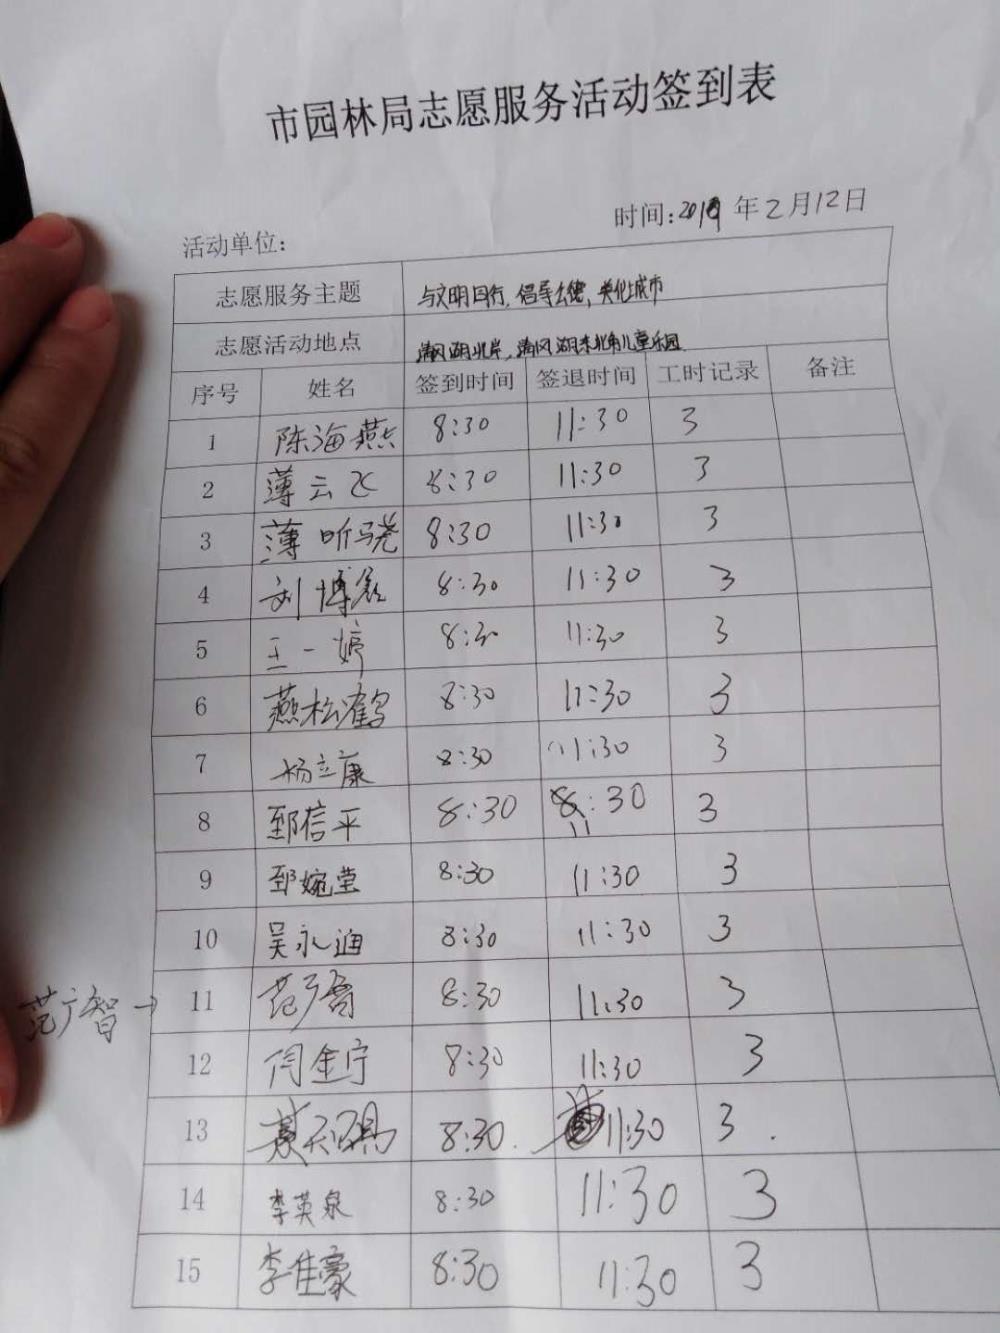 市园林局志愿服务活动签到表
时间:2019年2月12日
活动单位:
志愿服务主题 与文明同行,倡导公德,美化城市
志愿活动地点 清风湖北岸,清风湖东北角儿童乐园
序号 姓名 签到时间 签退时间 工时记录 备注
1 陈海燕 8:30 11:30 3
2 薄云飞 8:30 11:30 3
3 薄昕骁 8:30 11:30 3
4 刘博 8:30 11:30 3
5 王一婷 8:30 11:30 3
6 燕松鹤 8:30 11:30 3
7 杨立康 8:30 11:30 3
8 郅信平 8:30 11:30 3
9 郅婉莹 8:30 11:30 3
10 吴永迪 8:30 11:30 3
范广智→ 11 范广智 8:30 11:30 3
12 闫金宁 8:30 11:30 3
13 8:30. 11:30 3.
14 李英泉 8:30 11:30 3
15 李佳豪 8:30 11:30 3